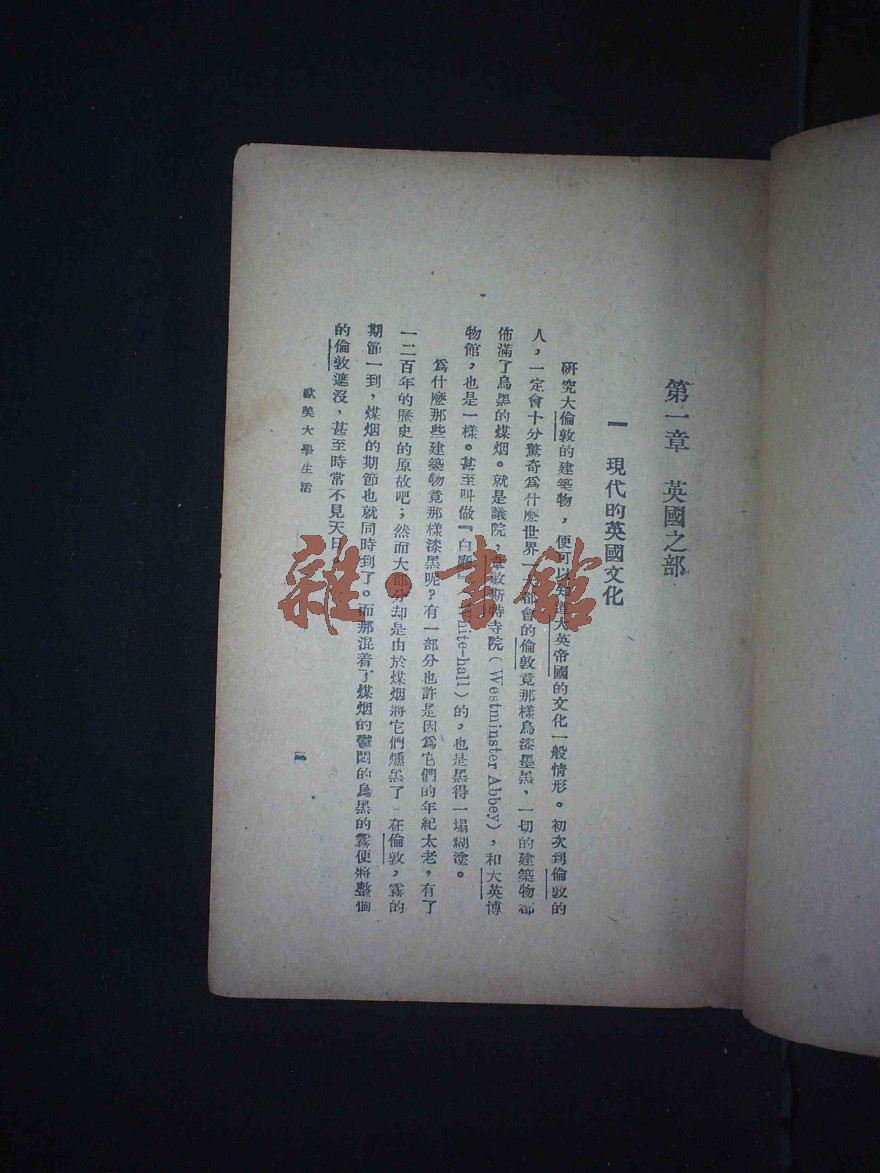 第一章　英國之部
一　現代的英國文化
研究大倫敦的建築物，便可以知道大英帝國的文化一般情形。初次到倫敦的
人，一定會十分驚奇爲什麽世界一 都會的倫敦竟那樣烏漆墨黑，一切的建築物都
佈滿了烏黑的煤烟。就是議院， 敏斯特寺院（Westminster Abbey），和大英博
物館，也是一樣。甚至叫做『白 hite-hall）的，也是黑得一塌糊塗。
爲什麽那些建築物竟那樣漆黑呢？有一部分也許是因爲它們的年紀太老，有了
一二百年的歷史的原故吧；然而大部分却是由於煤烟將它們燻黑了。在倫敦，霧的
期節一到，煤烟的期節也就同時到了。而那混着了煤烟的鬱悶的烏黑的霧便將整個
的倫敦遮沒，甚至時常不見天日
歐美大學生活
一
雜·書館